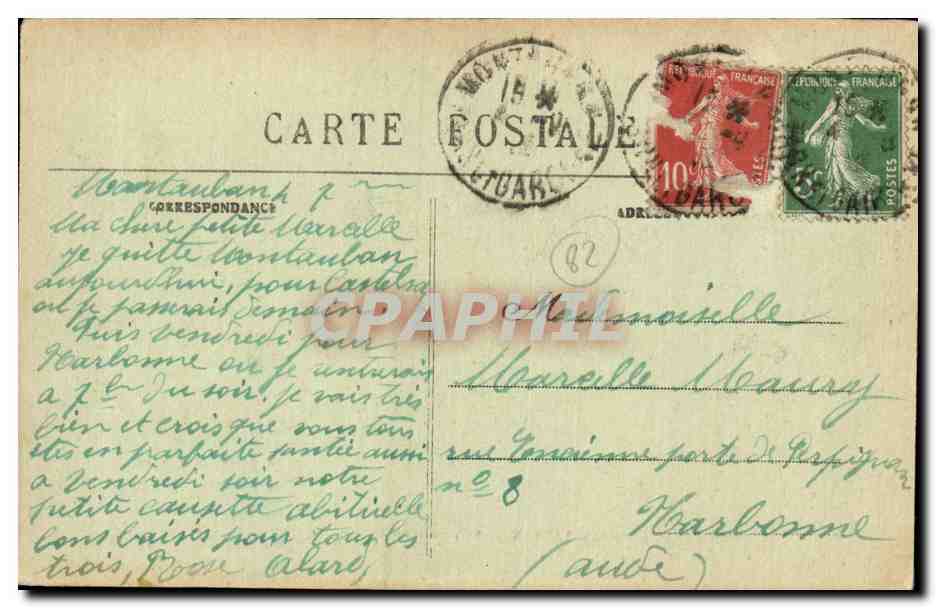 CARTE POSTALE
MONTAUBAN
15 *
RÉPUBLIQUE FRANÇAISE
10c
POSTES
RÉPUBLIQUE FRANÇAISE
5c
POSTES
CORRESPONDANCE
ADRESSE
82
CPARAMA
CPAPHIL
Montauban
Ma chere petite Marcelle
Je quitte Montauban
aujourdhui, pour Castelsa
ou je passerais demain.
Puis vendredi pour
Narbonne ou je rentrerais
a 7 hr du soir. je vais très
bien et crois que vous tous
etes en parfaite santée aussi
a vendredi soir notre
petite causette abituelle
bons baisés pour tous les
trois, Rose Alard
Mademoiselle
Marcelle Maury
rue Encienne porte de Perpignan
no 8
Narbonne
(aude)